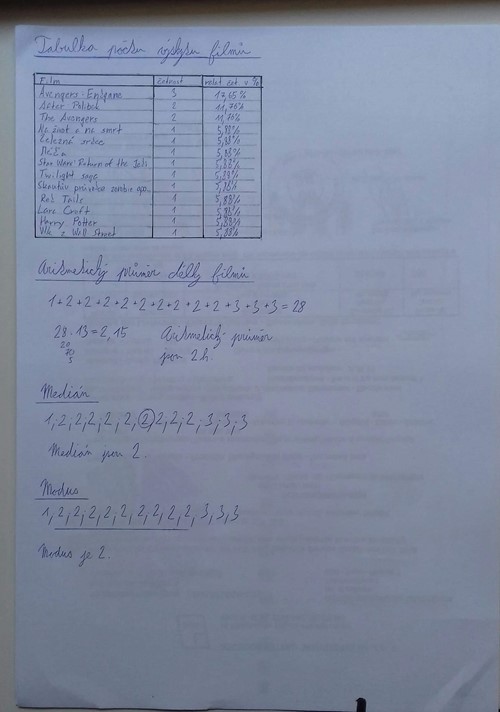 Tabulka počtu výskytu filmů
Film četnost relat. čet. v %
Avengers: Endgame 3 17,65 %
After Polibek 2 11,76%
The Avengers 2 11,76%
Na život a na smrt 1 5,88%
Železné srdce 1 5,88%
1 5,88%
Star Wars: Return of the Jedi 1 5,88%
Twilight saga 1 5,88%
Skautův průvodce zombie apo. 1
Red Tails 1 5,88%
Lara Croft 1 5,88%
Harry Potter 1 5,88%
Vlk z Wall Street 1 5,88%
Aritmetický průměr délky filmů
1+2+2+2+2+2+2+2+2+2+3+3+3=28
28:13=2,15 Aritmetický průměr
20 jsou 2h.
70
5
Medián
1,2,2,2,2,2,2,2,2,2,3,3,3
Medián jsou 2.
Modus
1,2,2,2,2,2,2,2,2,2,3,3,3
Modus je 2.